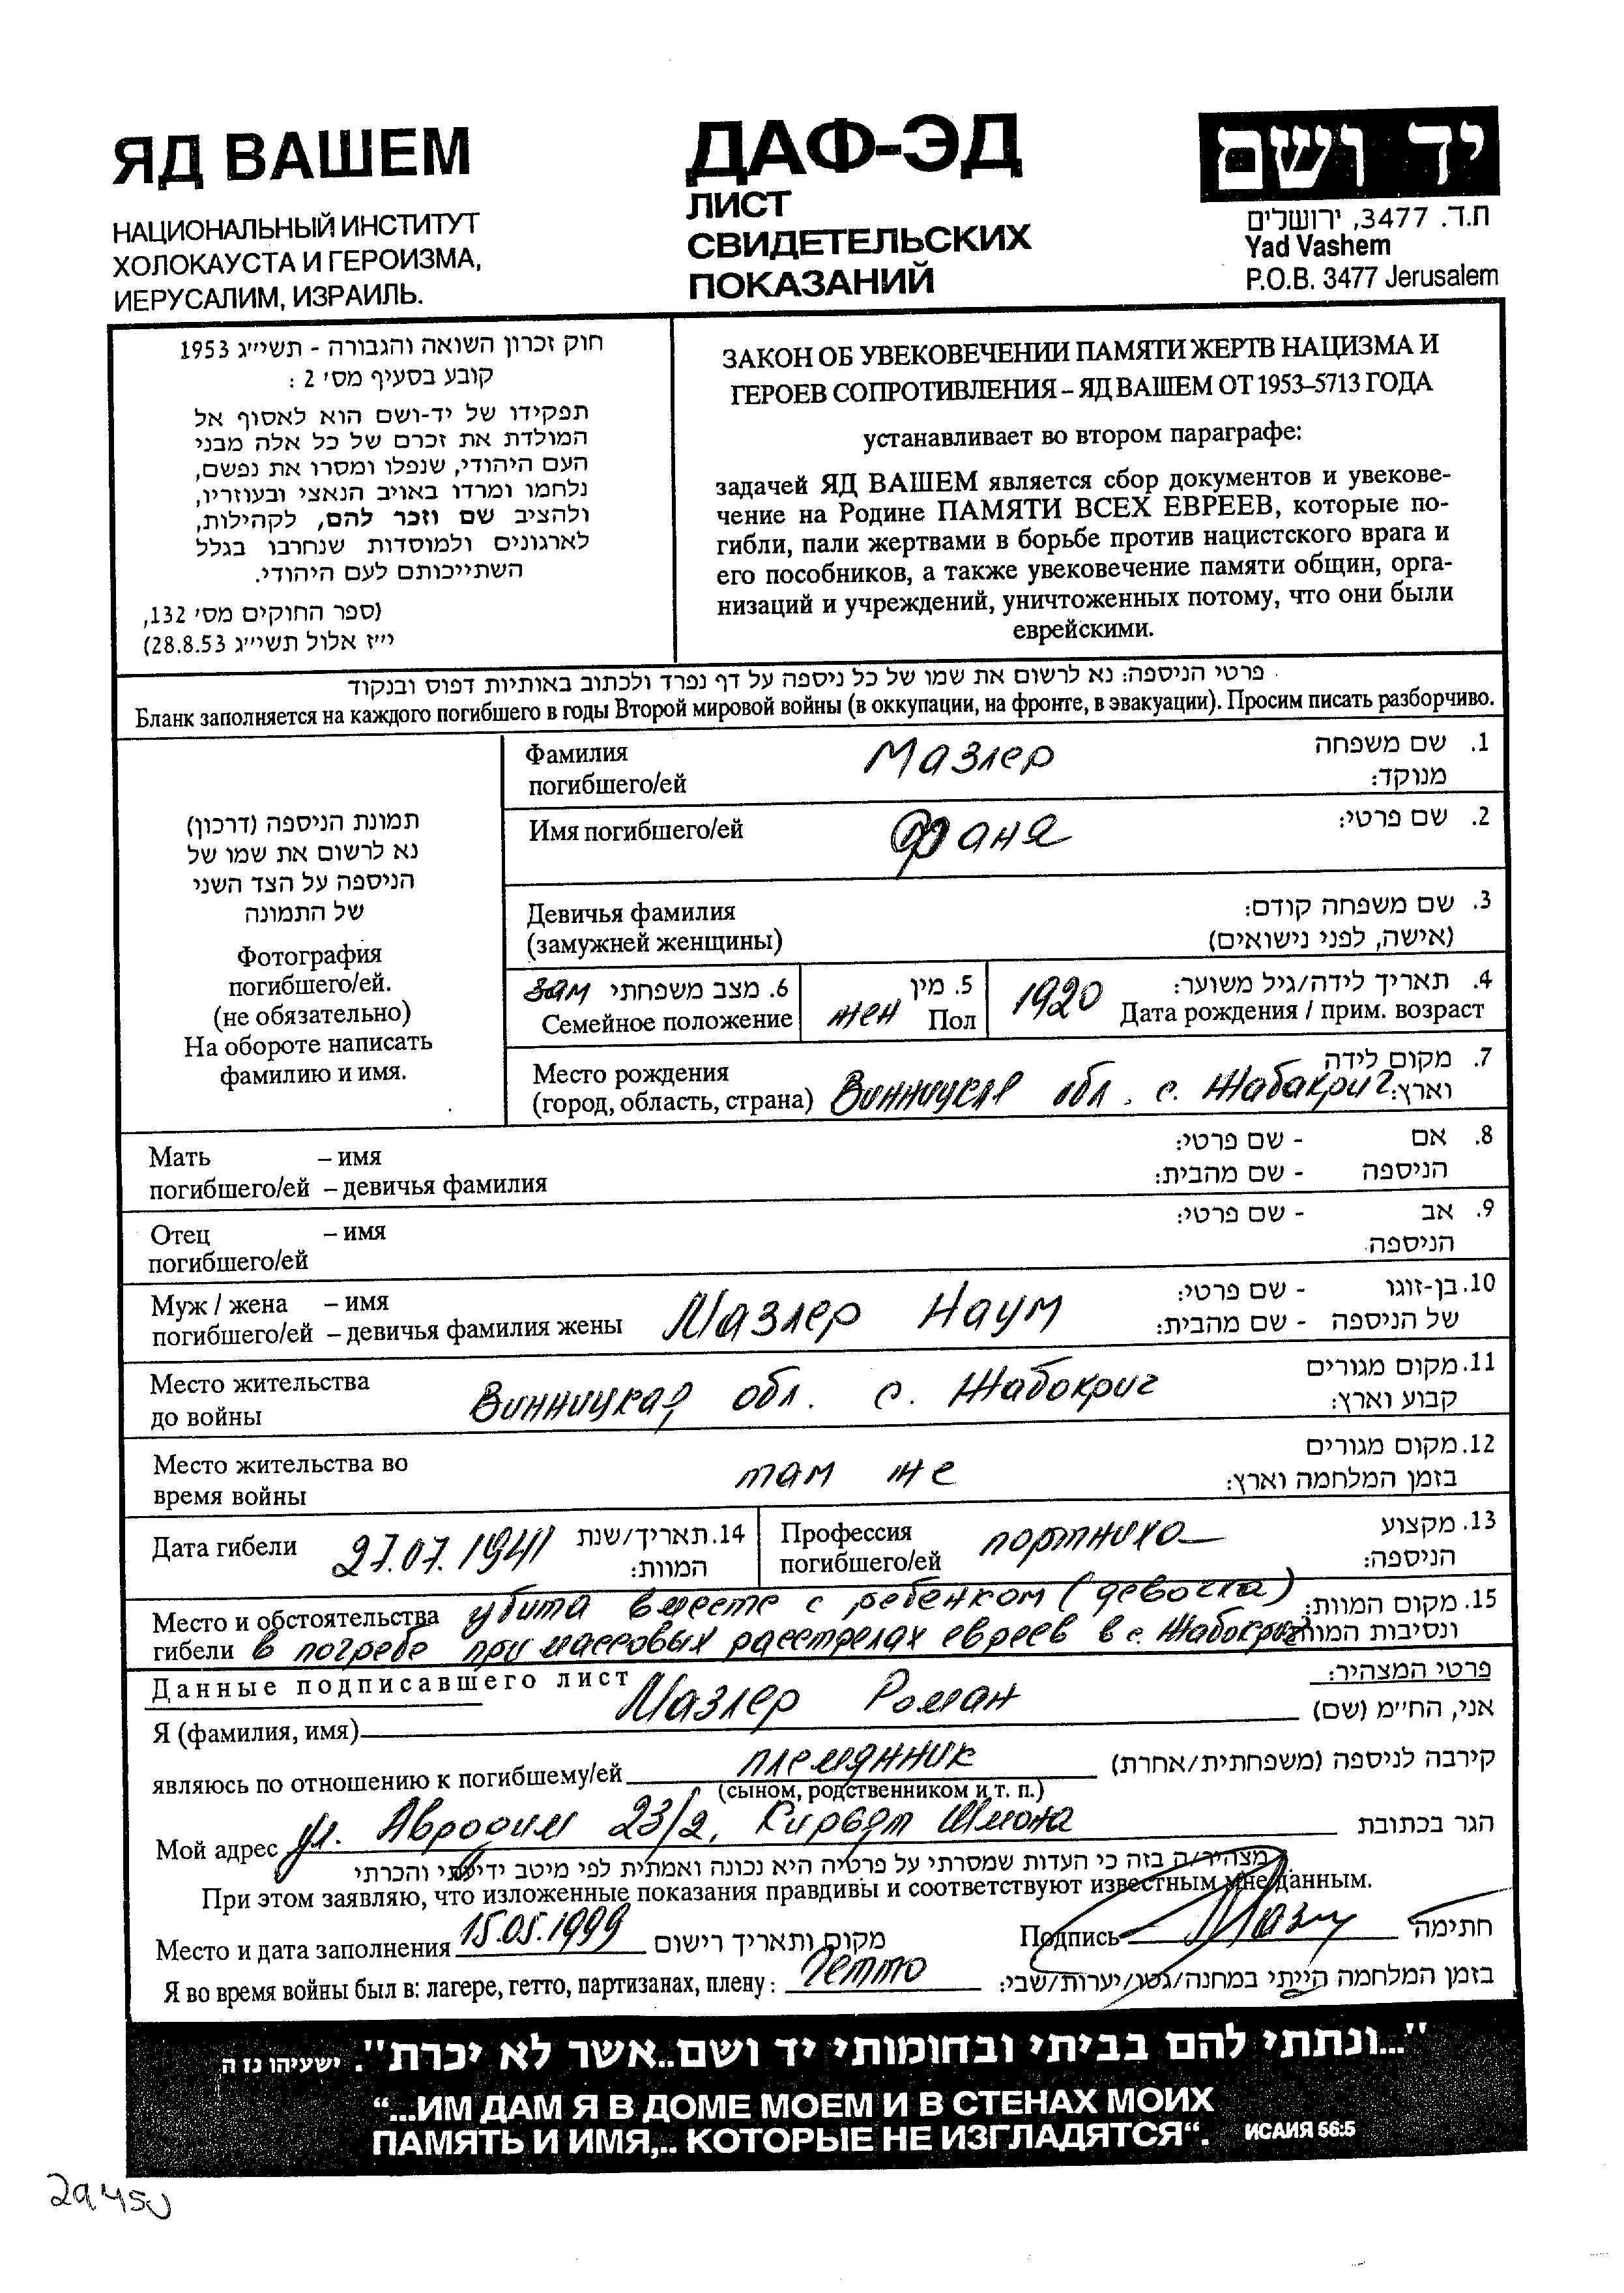 ЯД ВАШЕМ
НАЦИОНАЛЬНЫЙ ИНСТИТУТ
ХОЛОКАУСТА И ГЕРОИЗМА,
ИЕРУСАЛИМ, ИЗРАИЛЬ.
ДАФ-ЭД
ЛИСТ
СВИДЕТЕЛЬСКИХ
ПОКАЗАНИЙ
יד ושם
ת.ד. 3477, ירושלים
Yad Vashem
P.O.B. 3477 Jerusalem
חוק זכרון השואה והגבורה - תשי״ג 1953
קובע בסעיף מס׳ 2 :
תפקידו של יד-ושם הוא לאסוף אל
המולדת את זכרם של כל אלה מבני
העם היהודי, שנפלו ומסרו את נפשם,
נלחמו ומרדו באויב הנאצי ובעוזריו,
ולהציב שם וזכר להם, לקהילות,
לארגונים ולמוסדות שנחרבו בגלל
השתייכותם לעם היהודי.
(ספר החוקים מס׳ 132,
י״ז אלול תשי״ג 28.8.53)
ЗАКОН ОБ УВЕКОВЕЧЕНИИ ПАМЯТИ ЖЕРТВ НАЦИЗМА И
ГЕРОЕВ СОПРОТИВЛЕНИЯ – ЯД ВАШЕМ ОТ 1953–5713 ГОДА
устанавливает во втором параграфе:
задачей ЯД ВАШЕМ является сбор документов и увекове-
чение на Родине ПАМЯТИ ВСЕХ ЕВРЕЕВ, которые по-
гибли, пали жертвами в борьбе против нацистского врага и
его пособников, а также увековечение памяти общин, орга-
низаций и учреждений, уничтоженных потому, что они были
еврейскими.
פרטי הניספה: נא לרשום את שמו של כל ניספה על דף נפרד ולכתוב באותיות דפוס ובנקוד
Бланк заполняется на каждого погибшего в годы Второй мировой войны (в оккупации, на фронте, в эвакуации). Просим писать разборчиво.
תמונת הניספה (דרכון)
נא לרשום את שמו של
הניספה על הצד השני
של התמונה
Фотография
погибшего/ей.
(не обязательно)
На обороте написать
фамилию и имя.
Фамилия Мазлер 1. שם משפחה
погибшего/ей מנוקד:
Имя погибшего/ей Фаня 2. שם פרטי:
Девичья фамилия 3. שם משפחה קודם:
(замужней женщины) (אישה, לפני נישואים)
зам 6. מצב משפחתי 5. מין 1920 4. תאריך לידה/גיל משוער:
Семейное положение жен Пол Дата рождения / прим. возраст
Место рождения 7. מקום לידה
(город, область, страна) Винницкая обл. с. Жабакрич וארץ:
Мать – имя 8. אם - שם פרטי:
погибшего/ей – девичья фамилия הניספה - שם מהבית:
Отец – имя 9. אב - שם פרטי:
погибшего/ей הניספה
Муж / жена – имя 10. בן-זוגו - שם פרטי:
погибшего/ей – девичья фамилия жены Мазлер Наум של הניספה - שם מהבית:
Место жительства 11. מקום מגורים
до войны Винницкая обл. с. Жабокрич קבוע וארץ:
Место жительства во там же 12. מקום מגורים
время войны בזמן המלחמה וארץ:
Дата гибели 27.07.1941 14. תאריך/שנת
המוות:
Профессия портниха 13. מקצוע
погибшего/ей הניספה:
Место и обстоятельства убита вместе с ребенком (девочка) 15. מקום המוות:
гибели в погребе при массовых расстрелах евреев в с. Жабокрич ונסיבות המוות
Данные подписавшего лист פרטי המצהיר:
Я (фамилия, имя) Мазлер Роман אני, החי״מ (שם)
являюсь по отношению к погибшему/ей племянник קירבה לניספה (משפחתית/אחרת)
(сыном, родственником и т. п.)
Мой адрес ул. 23/2, Кирьят Шмона הגר בכתובת
מצהיר/ה בזה כי העדות שמסרתי על פרטיה היא נכונה ואמתית לפי מיטב ידיעתי והכרתי
При этом заявляю, что изложенные показания правдивы и соответствуют известным мне данным.
Место и дата заполнения 15.05.1999 מקום ותאריך רישום Подпись חתימה
Я во время войны был в: лагере, гетто, партизанах, плену: Гетто בזמן המלחמה הייתי במחנה/גטו/יערות/שבי:
"...ונתתי להם בביתי ובחומותי יד ושם..אשר לא יכרת". ישעיהו נז ה
“...ИМ ДАМ Я В ДОМЕ МОЕМ И В СТЕНАХ МОИХ
ПАМЯТЬ И ИМЯ,.. КОТОРЫЕ НЕ ИЗГЛАДЯТСЯ“. ИСАИЯ 56:5